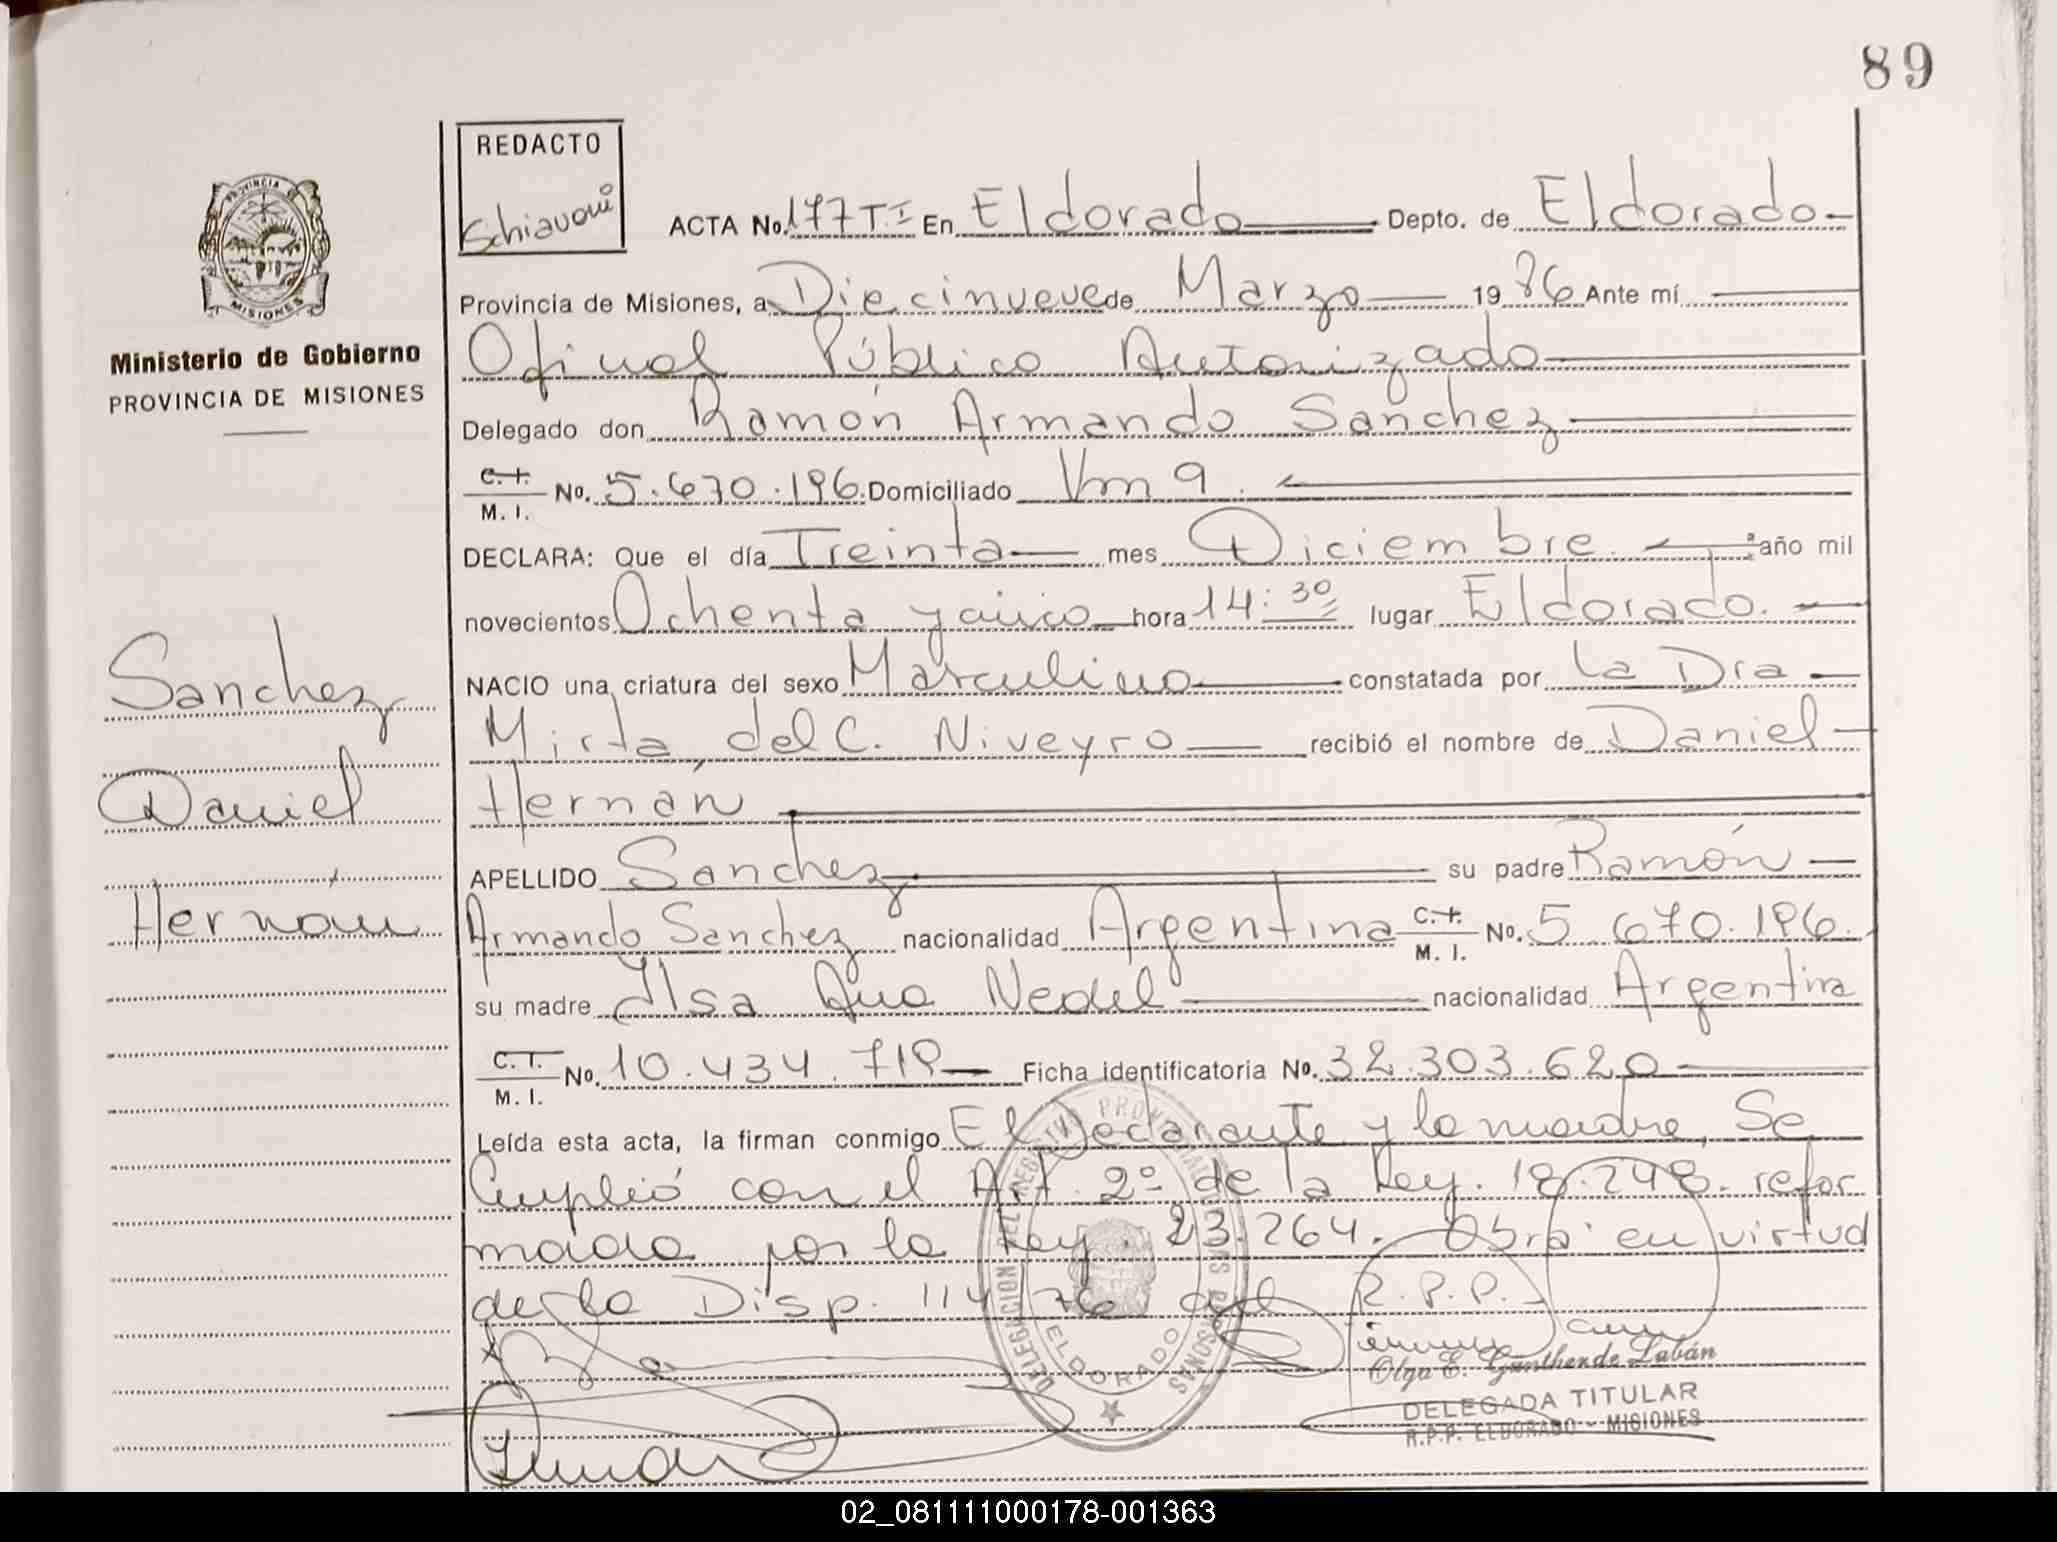 89
REDACTO
Schiavoni
PROVINCIA
MISIONES
Ministerio de Gobierno
PROVINCIA DE MISIONES
Sanchez
Daniel
Hernán
ACTA No. 177 T.I En Eldorado Depto. de Eldorado
Provincia de Misiones, a Diecinueve de Marzo 1986 Ante mí
Oficial Público Autorizado
Delegado don Ramón Armando Sanchez
C.I. M. I. No. 5.670.196. Domiciliado Km 9.
DECLARA: Que el día Treinta mes Diciembre. año mil
novecientos Ochenta y cinco hora 14:30 lugar Eldorado.
NACIO una criatura del sexo Masculino constatada por la Dra
Mirta del C. Niveyro recibió el nombre de Daniel
Hernán
APELLIDO Sanchez su padre Ramón
Armando Sanchez nacionalidad Argentina C.I. M. I. No. 5 670.196.
su madre Ilsa Ana Nedel nacionalidad Argentina
C.I. M. I. No. 10.434.719 Ficha identificatoria No. 32.303.620
Leída esta acta, la firman conmigo El Declarante y la madre, Se
Cumplió con el Art. 2º de la Ley. 18.248. refor
mada por la Ley. 23.264. Obra en virtud
de la Disp. 114/76 del R.P.P.
DELEGACION DEL REGISTRO PROVINCIAL DE LAS PERSONAS
ELDORADO
Olga E. Gunther de Labán
DELEGADA TITULAR
R.P.P. ELDORADO - MISIONES
02_081111000178-001363